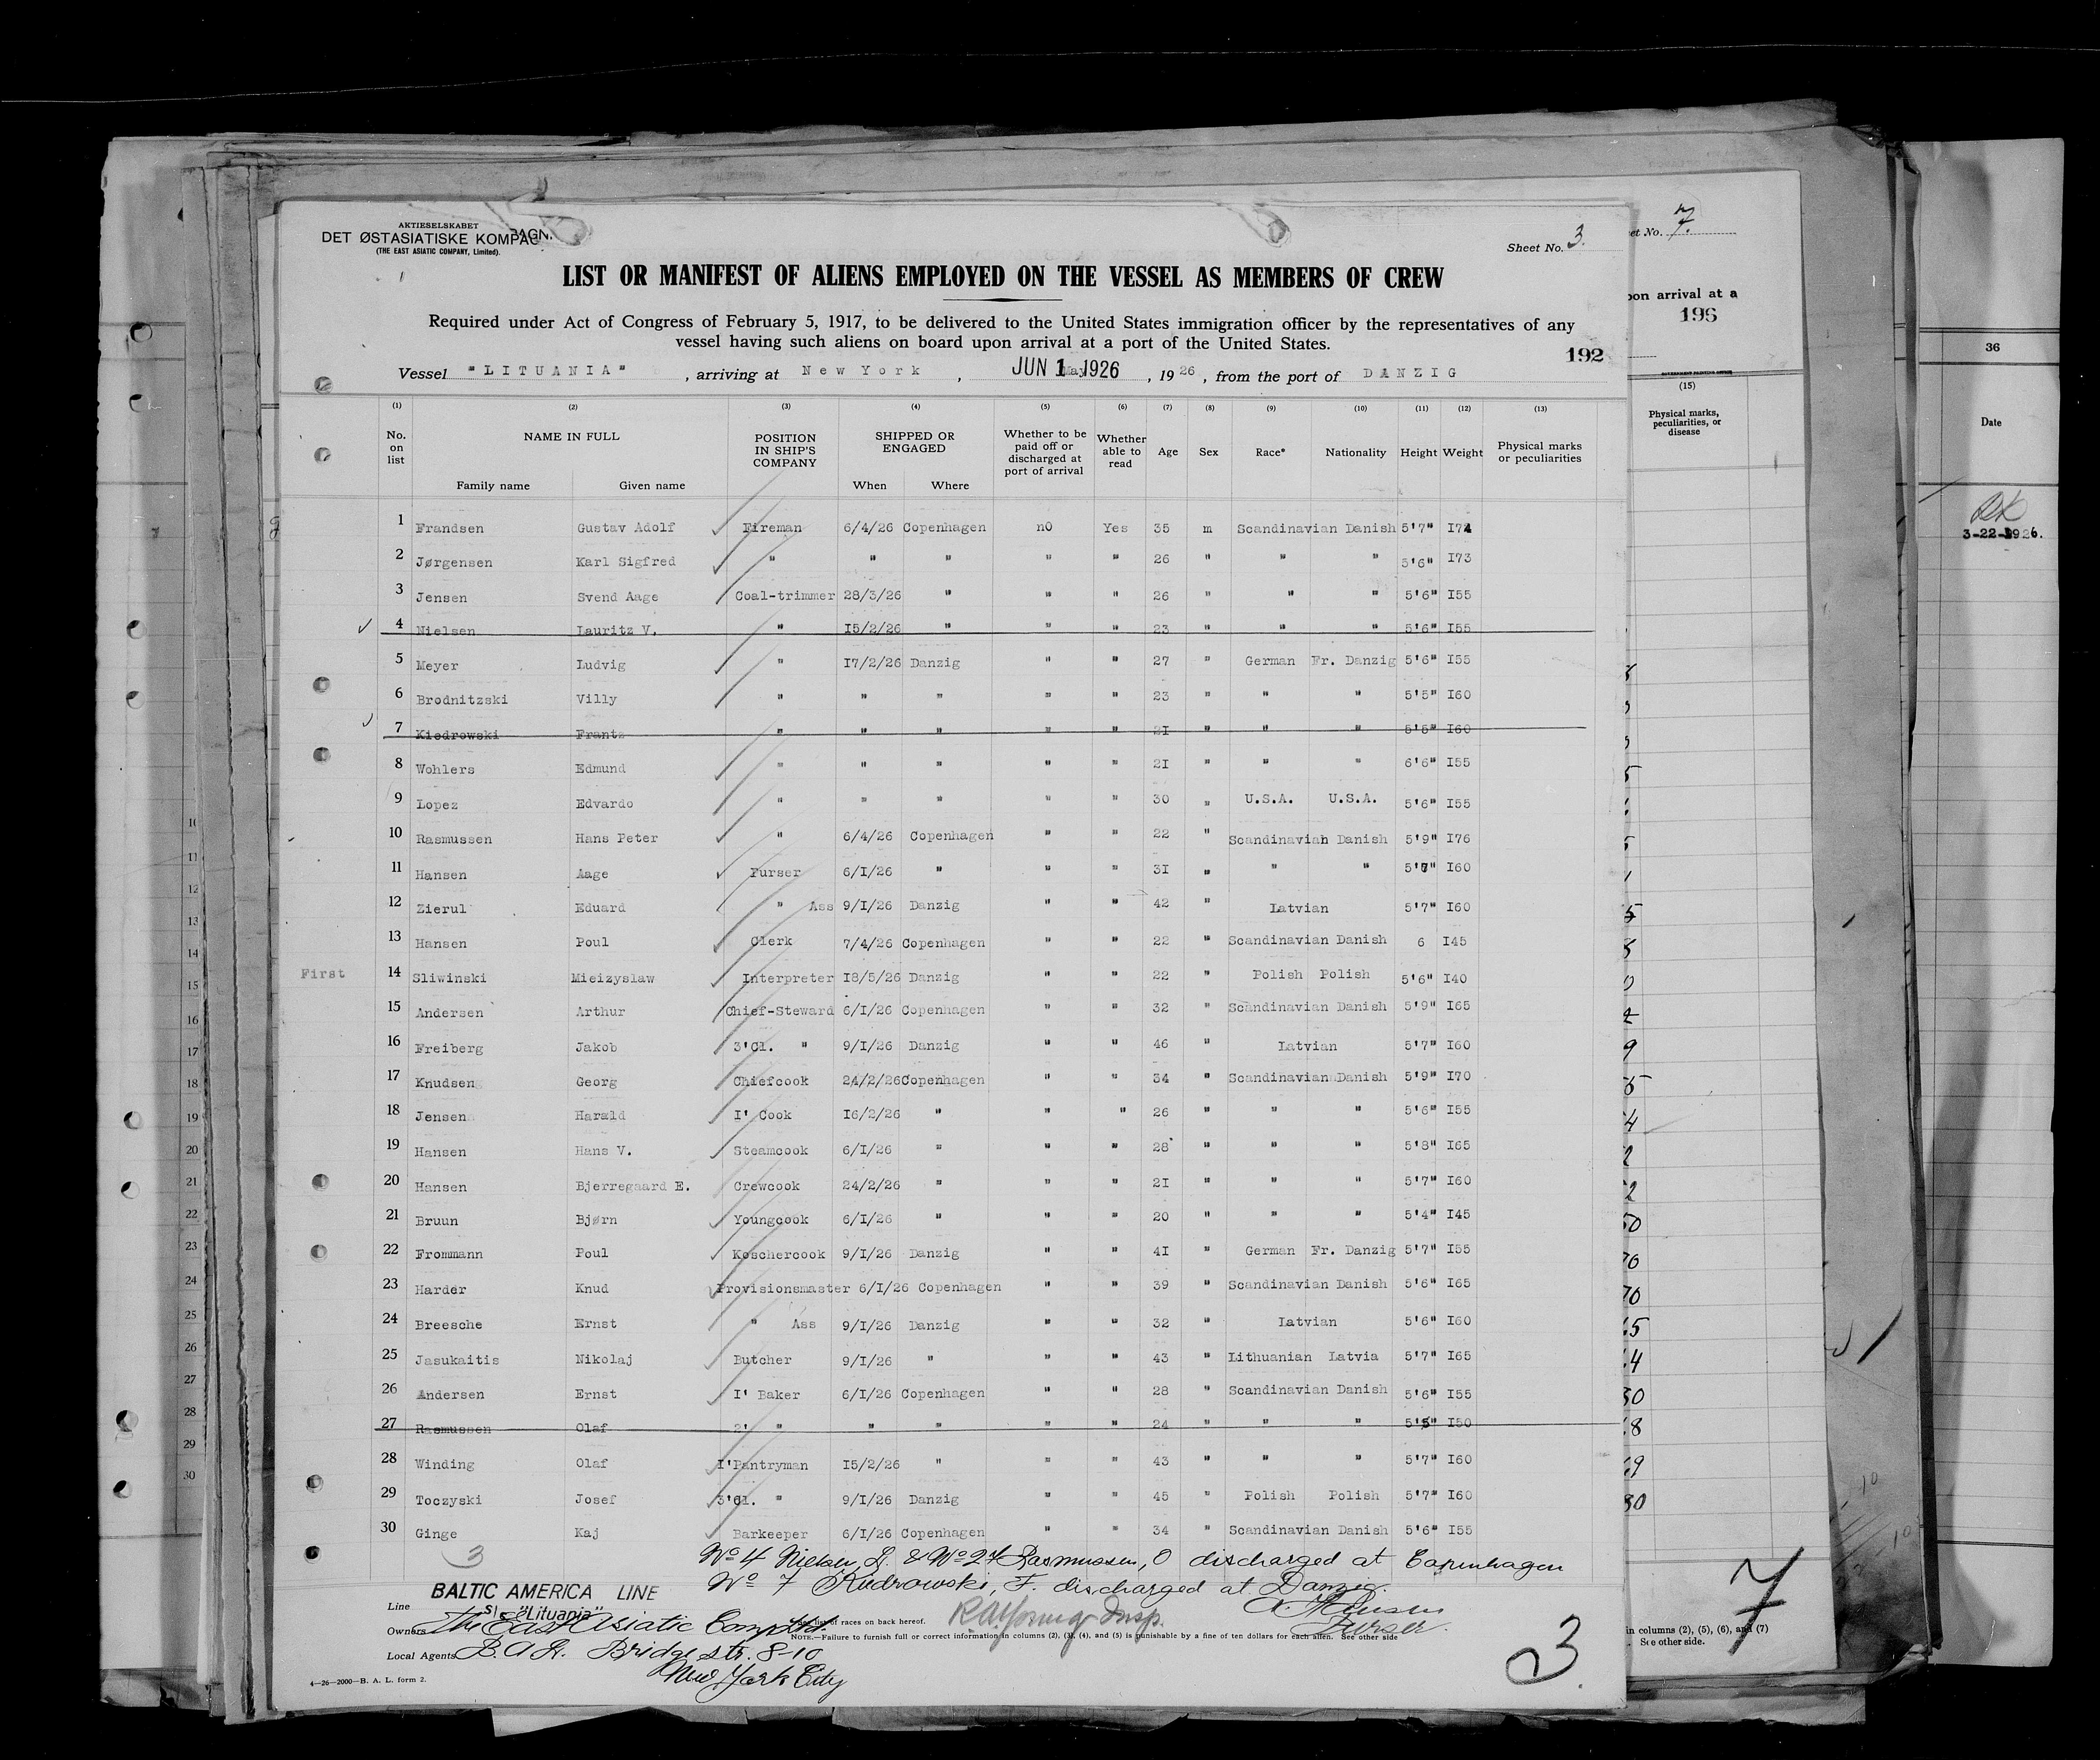 AKTIESELSKABET
DET ØSTASIATISKE KOMPAGN.
(THE EAST ASIATIC COMPANY, Limited).
Sheet No. 3.
LIST OR MANIFEST OF ALIENS EMPLOYED ON THE VESSEL AS MEMBERS OF CREW
Required under Act of Congress of February 5, 1917, to be delivered to the United States immigration officer by the representatives of any
vessel having such aliens on board upon arrival at a port of the United States.
192
Vessel "LITUANIA", arriving at New York, JUN 1 1926, 1926, from the port of DANZIG
(1) (2) (3) (4) (5) (6) (7) (8) (9) (10) (11) (12) (13)
No. on list NAME IN FULL Family name Given name POSITION IN SHIP'S COMPANY SHIPPED OR ENGAGED When Where Whether to be paid off or discharged at port of arrival Whether able to read Age Sex Race* Nationality Height Weight Physical marks or peculiarities
1 Frandsen Gustav Adolf Fireman 6/4/26 Copenhagen no Yes 35 m Scandinavian Danish 5'7" I74
2 Jørgensen Karl Sigfred " " " " " 26 " " " 5'6" I73
3 Jensen Svend Aage Coal-trimmer 28/3/26 " " " 26 " " " 5'6" I55
4 Nielsen Lauritz V. " I5/2/26 " " " 23 " " " 5'6" I55
5 Meyer Ludvig " I7/2/26 Danzig " " 27 " German Fr. Danzig 5'6" I55
6 Brodnitzski Villy " " " " " 23 " " " 5'5" I60
7 Kiedrowski Frantz " " " " " 2I " " " 5'5" I60
8 Wohlers Edmund " " " " " 2I " " " 6'6" I55
9 Lopez Edvardo " " " " " 30 " U.S.A. U.S.A. 5'6" I55
10 Rasmussen Hans Peter " 6/4/26 Copenhagen " " 22 " Scandinavian Danish 5'9" I76
11 Hansen Aage Purser 6/I/26 " " " 3I " " " 5'7" I60
12 Zierul Eduard " Ass 9/I/26 Danzig " " 42 " Latvian 5'7" I60
13 Hansen Poul Clerk 7/4/26 Copenhagen " " 22 " Scandinavian Danish 6 I45
First 14 Sliwinski Mieizyslaw Interpreter I8/5/26 Danzig " " 22 " Polish Polish 5'6" I40
15 Andersen Arthur Chief-Steward 6/I/26 Copenhagen " " 32 " Scandinavian Danish 5'9" I65
16 Freiberg Jakob 3'Cl. " 9/I/26 Danzig " " 46 " Latvian 5'7" I60
17 Knudsen Georg Chiefcook 24/2/26 Copenhagen " " 34 " Scandinavian Danish 5'9" I70
18 Jensen Harald I' Cook I6/2/26 " " " 26 " " " 5'6" I55
19 Hansen Hans V. Steamcook 6/I/26 " " " 28 " " " 5'8" I65
20 Hansen Bjerregaard E. Crewcook 24/2/26 " " " 2I " " " 5'7" I60
21 Bruun Bjørn Youngcook 6/I/26 " " " 20 " " " 5'4" I45
22 Frommann Poul Koschercook 9/I/26 Danzig " " 4I " German Fr. Danzig 5'7" I55
23 Harder Knud Provisionsmaster 6/I/26 Copenhagen " " 39 " Scandinavian Danish 5'6" I65
24 Breesche Ernst " Ass 9/I/26 Danzig " " 32 " Latvian 5'6" I60
25 Jasukaitis Nikolaj Butcher 9/I/26 " " " 43 " Lithuanian Latvia 5'7" I65
26 Andersen Ernst I' Baker 6/I/26 Copenhagen " " 28 " Scandinavian Danish 5'6" I55
27 Rasmussen Olaf 2' " " " " " 24 " " " 5'5" I50
28 Winding Olaf I'Pantryman I5/2/26 " " " 43 " " " 5'7" I60
29 Toczyski Josef 3'Cl. " 9/I/26 Danzig " " 45 " Polish Polish 5'7" I60
30 Ginge Kaj Barkeeper 6/I/26 Copenhagen " " 34 " Scandinavian Danish 5'6" I55
3
No 4 Nielsen, L. & No 27 Rasmussen, O discharged at Copenhagen
No 7 Kiedrowski, F. discharged at Danzig.
Line BALTIC AMERICA LINE
S/S "Lituania"
Owners The East Asiatic Comp Ltd.
list of races on back hereof.
Insp.
Purser.
NOTE.—Failure to furnish full or correct information in columns (2), (3), (4), and (5) is punishable by a fine of ten dollars for each alien. See other side
Local Agents B.A.L. Bridge str. 8-10
New York City
3.
4—26—2000—B. A. L. form 2.
et No. 7.
pon arrival at a
196
GOVERNMENT PRINTING OFFICE
(15)
Physical marks, peculiarities, or disease
in columns (2), (5), (6), and (7)
See other side.
7
36
Date
3-22-1926.